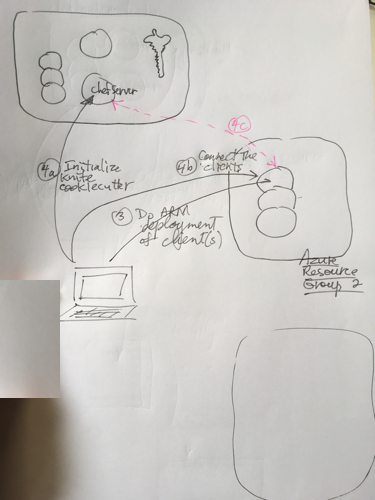 chef server
4c
4a Initialize
knife
cookiecutter
4b Connect the
clients
3 Do ARM
deployment
of client(s)
Azure
Resource
Group 2